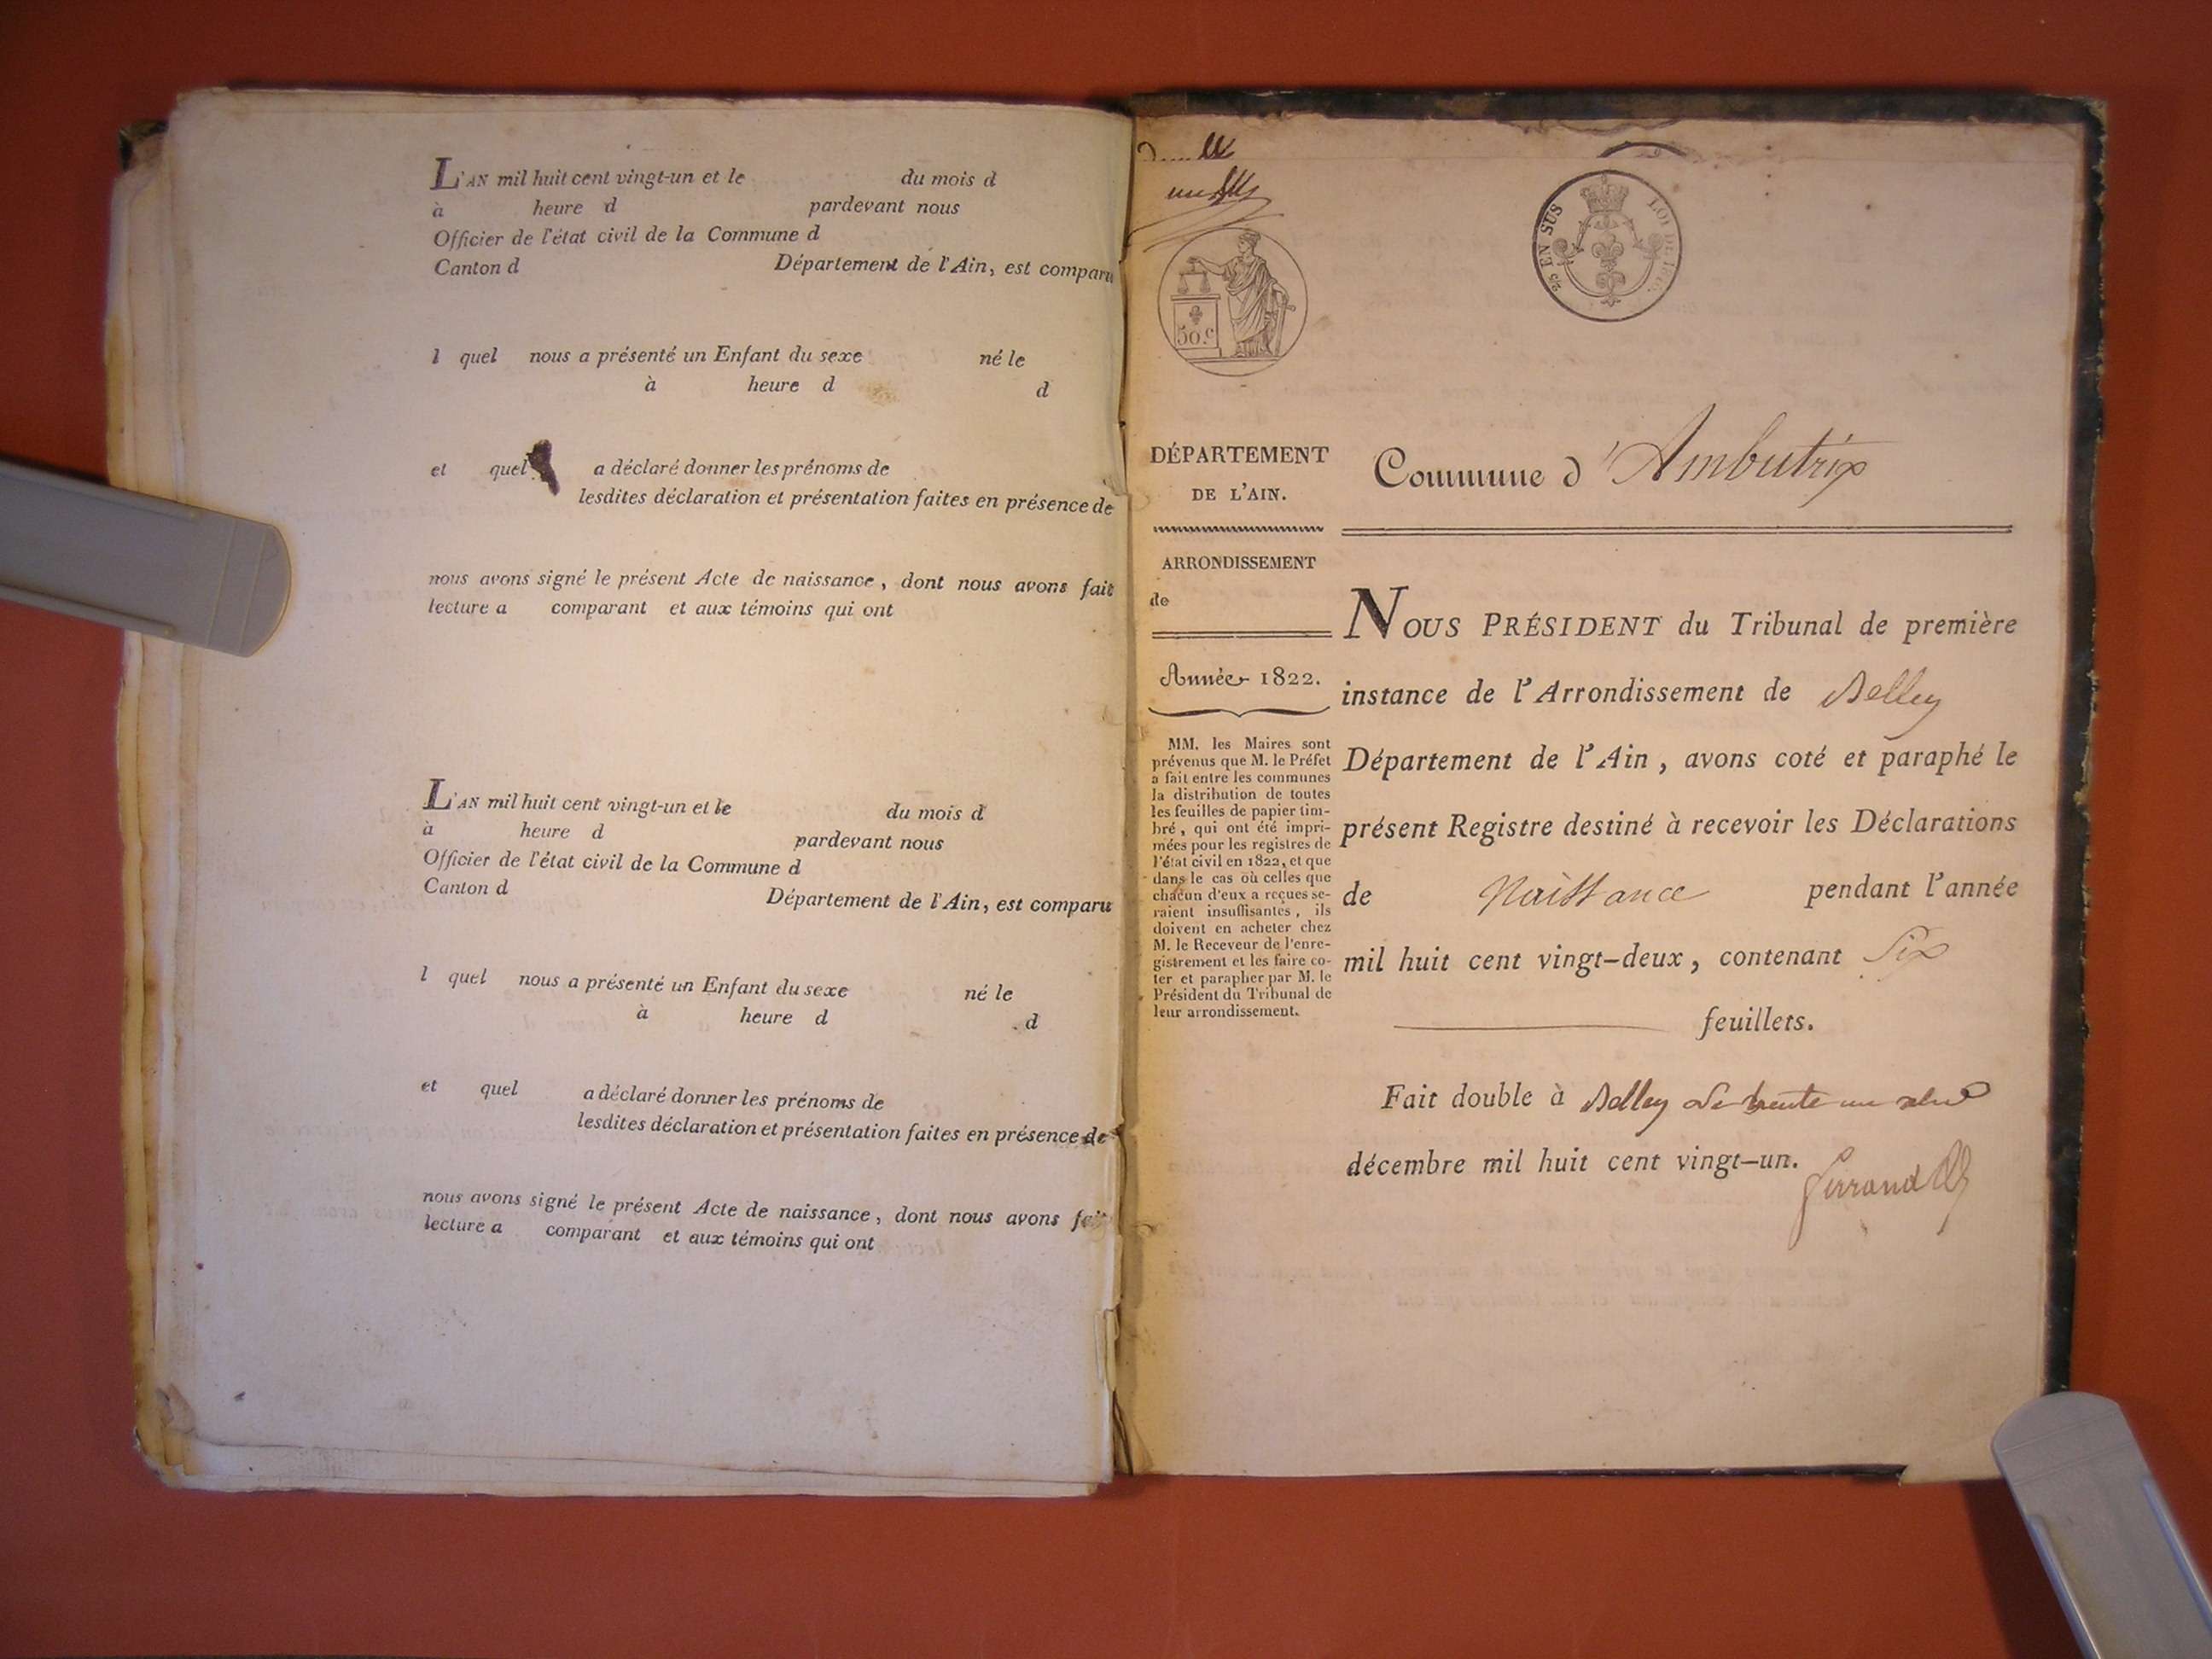 L'AN mil huit cent vingt-un et le du mois d
à heure d pardevant nous
Officier de l'état civil de la Commune d
Canton d Département de l'Ain, est comparu
l quel nous a présenté un Enfant du sexe né le
à heure d d
et quel a déclaré donner les prénoms de
lesdites déclaration et présentation faites en présence de
nous avons signé le présent Acte de naissance, dont nous avons fait
lecture a comparant et aux témoins qui ont
L'AN mil huit cent vingt-un et le du mois d
à heure d pardevant nous
Officier de l'état civil de la Commune d
Canton d Département de l'Ain, est comparu
l quel nous a présenté un Enfant du sexe né le
à heure d d
et quel a déclaré donner les prénoms de
lesdites déclaration et présentation faites en présence de
nous avons signé le présent Acte de naissance, dont nous avons fait
lecture a comparant et aux témoins qui ont
50 c
EN SUS LOI DE
DÉPARTEMENT
DE L'AIN.
ARRONDISSEMENT
de
Année 1822.
MM. les Maires sont
prévenus que M. le Préfet
a fait entre les communes
la distribution de toutes
les feuilles de papier tim-
bré, qui ont été impri-
mées pour les registres de
l'état civil en 1822, et que
dans le cas où celles que
chacun d'eux a reçues se-
raient insuffisantes, ils
doivent en acheter chez
M. le Receveur de l'enre-
gistrement et les faire co-
ter et parapher par M. le
Président du Tribunal de
leur arrondissement.
Commune d'Ambutrix
NOUS PRÉSIDENT du Tribunal de première
instance de l'Arrondissement de Belley
Département de l'Ain, avons coté et paraphé le
présent Registre destiné à recevoir les Déclarations
de Naissance pendant l'année
mil huit cent vingt-deux, contenant Six
feuillets.
Fait double à Belley le trente un
décembre mil huit cent vingt-un.